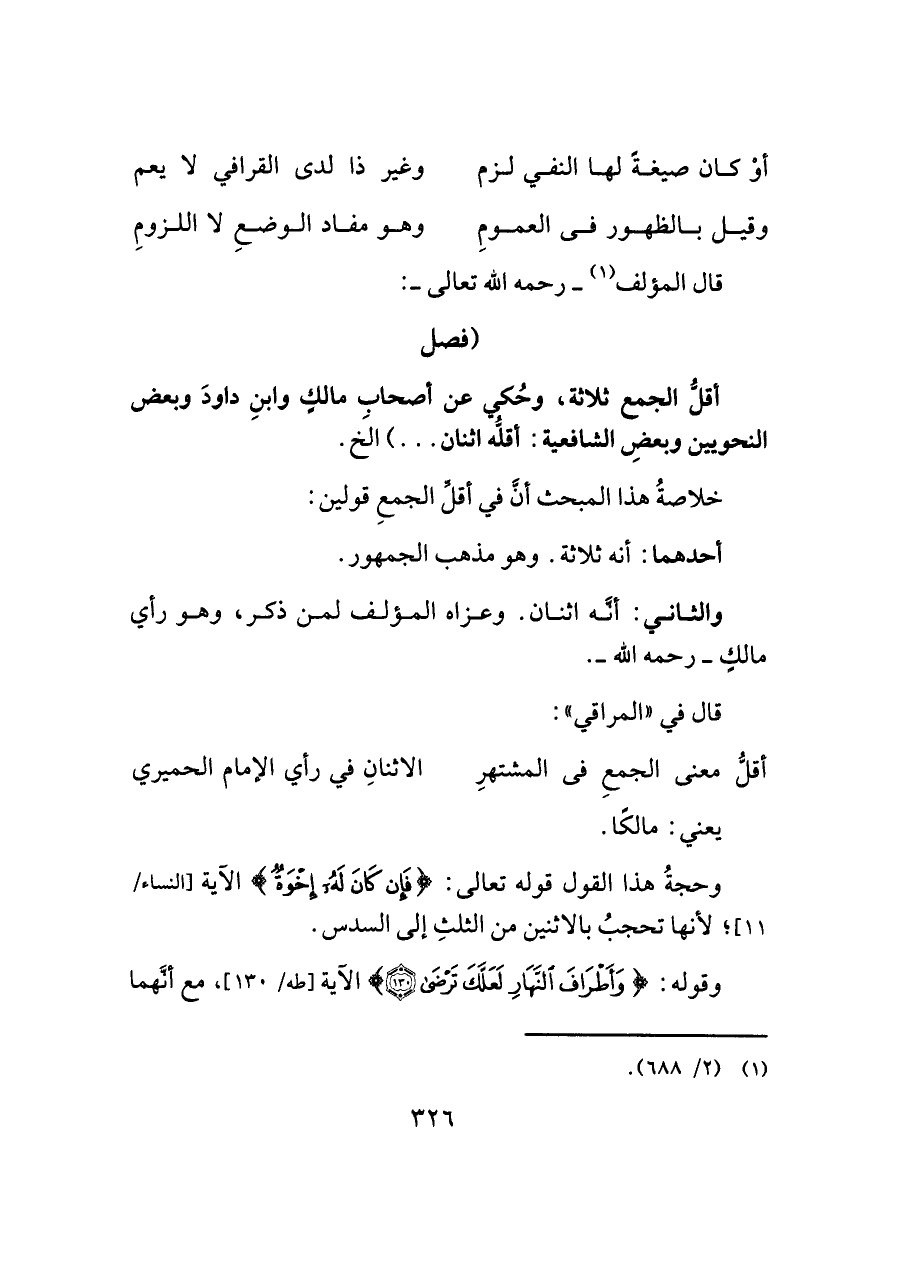 أوْ كـان صيغـةً لهـا النفـي لـزم وغير ذا لدى القرافي لا يعم
وقيـل بـالظهـور فـى العمـومِ وهـو مفـاد الـوضـعِ لا اللـزومِ
قال المؤلف(١) ـ رحمه الله تعالى ـ:
(فصل
أقلُّ الجمع ثلاثة، وحُكي عن أصحابِ مالكٍ وابنِ داودَ وبعض
النحويين وبعضِ الشافعية: أقلُّه اثنان. . .) الخ.
خلاصةُ هذا المبحث أنَّ في أقلِّ الجمعِ قولين:
أحدهما: أنه ثلاثة. وهو مذهب الجمهور.
والثـانـي: أنَّـه اثنـان. وعـزاه المـؤلـف لمـن ذكـر، وهـو رأي
مالكٍ ـ رحمه الله ـ.
قال في «المراقي»:
أقلُّ معنى الجمعِ فى المشتهرِ الاثنانِ في رأي الإمام الحميري
يعني: مالكًا.
وحجةُ هذا القول قوله تعالى: ﴿فَإِن كَانَ لَهُۥٓ إِخْوَةٌ﴾ الآية [النساء/
١١]؛ لأنها تحجبُ بالاثنين من الثلثِ إلى السدس.
وقوله: ﴿وَأَطْرَافَ ٱلنَّهَارِ لَعَلَّكَ تَرْضَىٰ ۝١٣٠﴾ الآية [طه/ ١٣٠]، مع أنَّهما
(١) (٢/ ٦٨٨).
٣٢٦